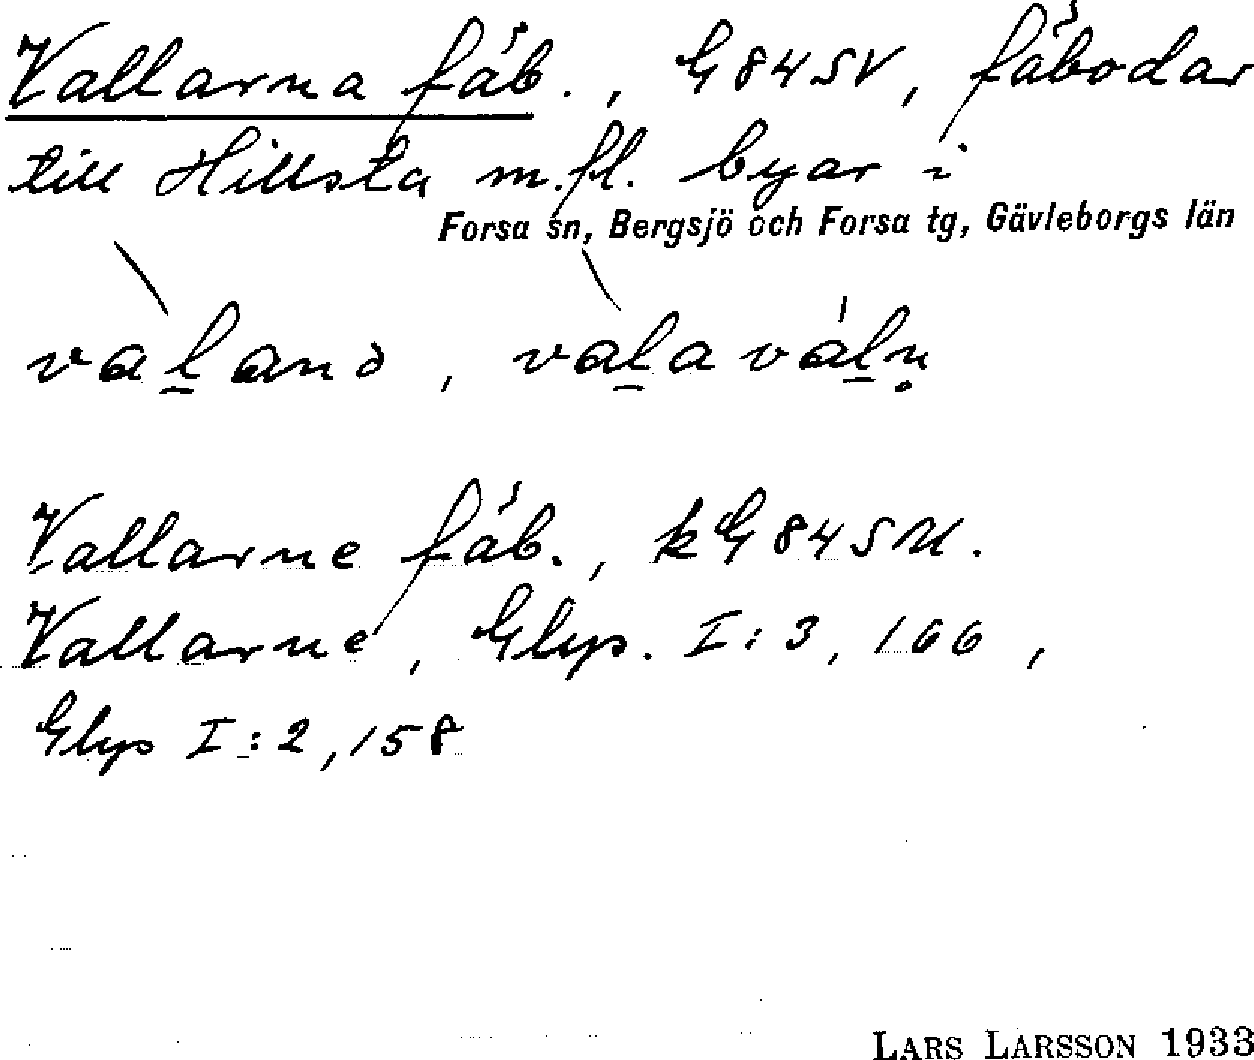 Vallarna fäb., G84SV, fäbodar
till Hillsta m.fl. byar i
Forsa sn, Bergsjö och Forsa tg, Gävleborgs län
Vallarne fäb., kG84SU.
Vallarne, Glys. I:3, 166,
Glys I:2, 158
LARS LARSSON 1933